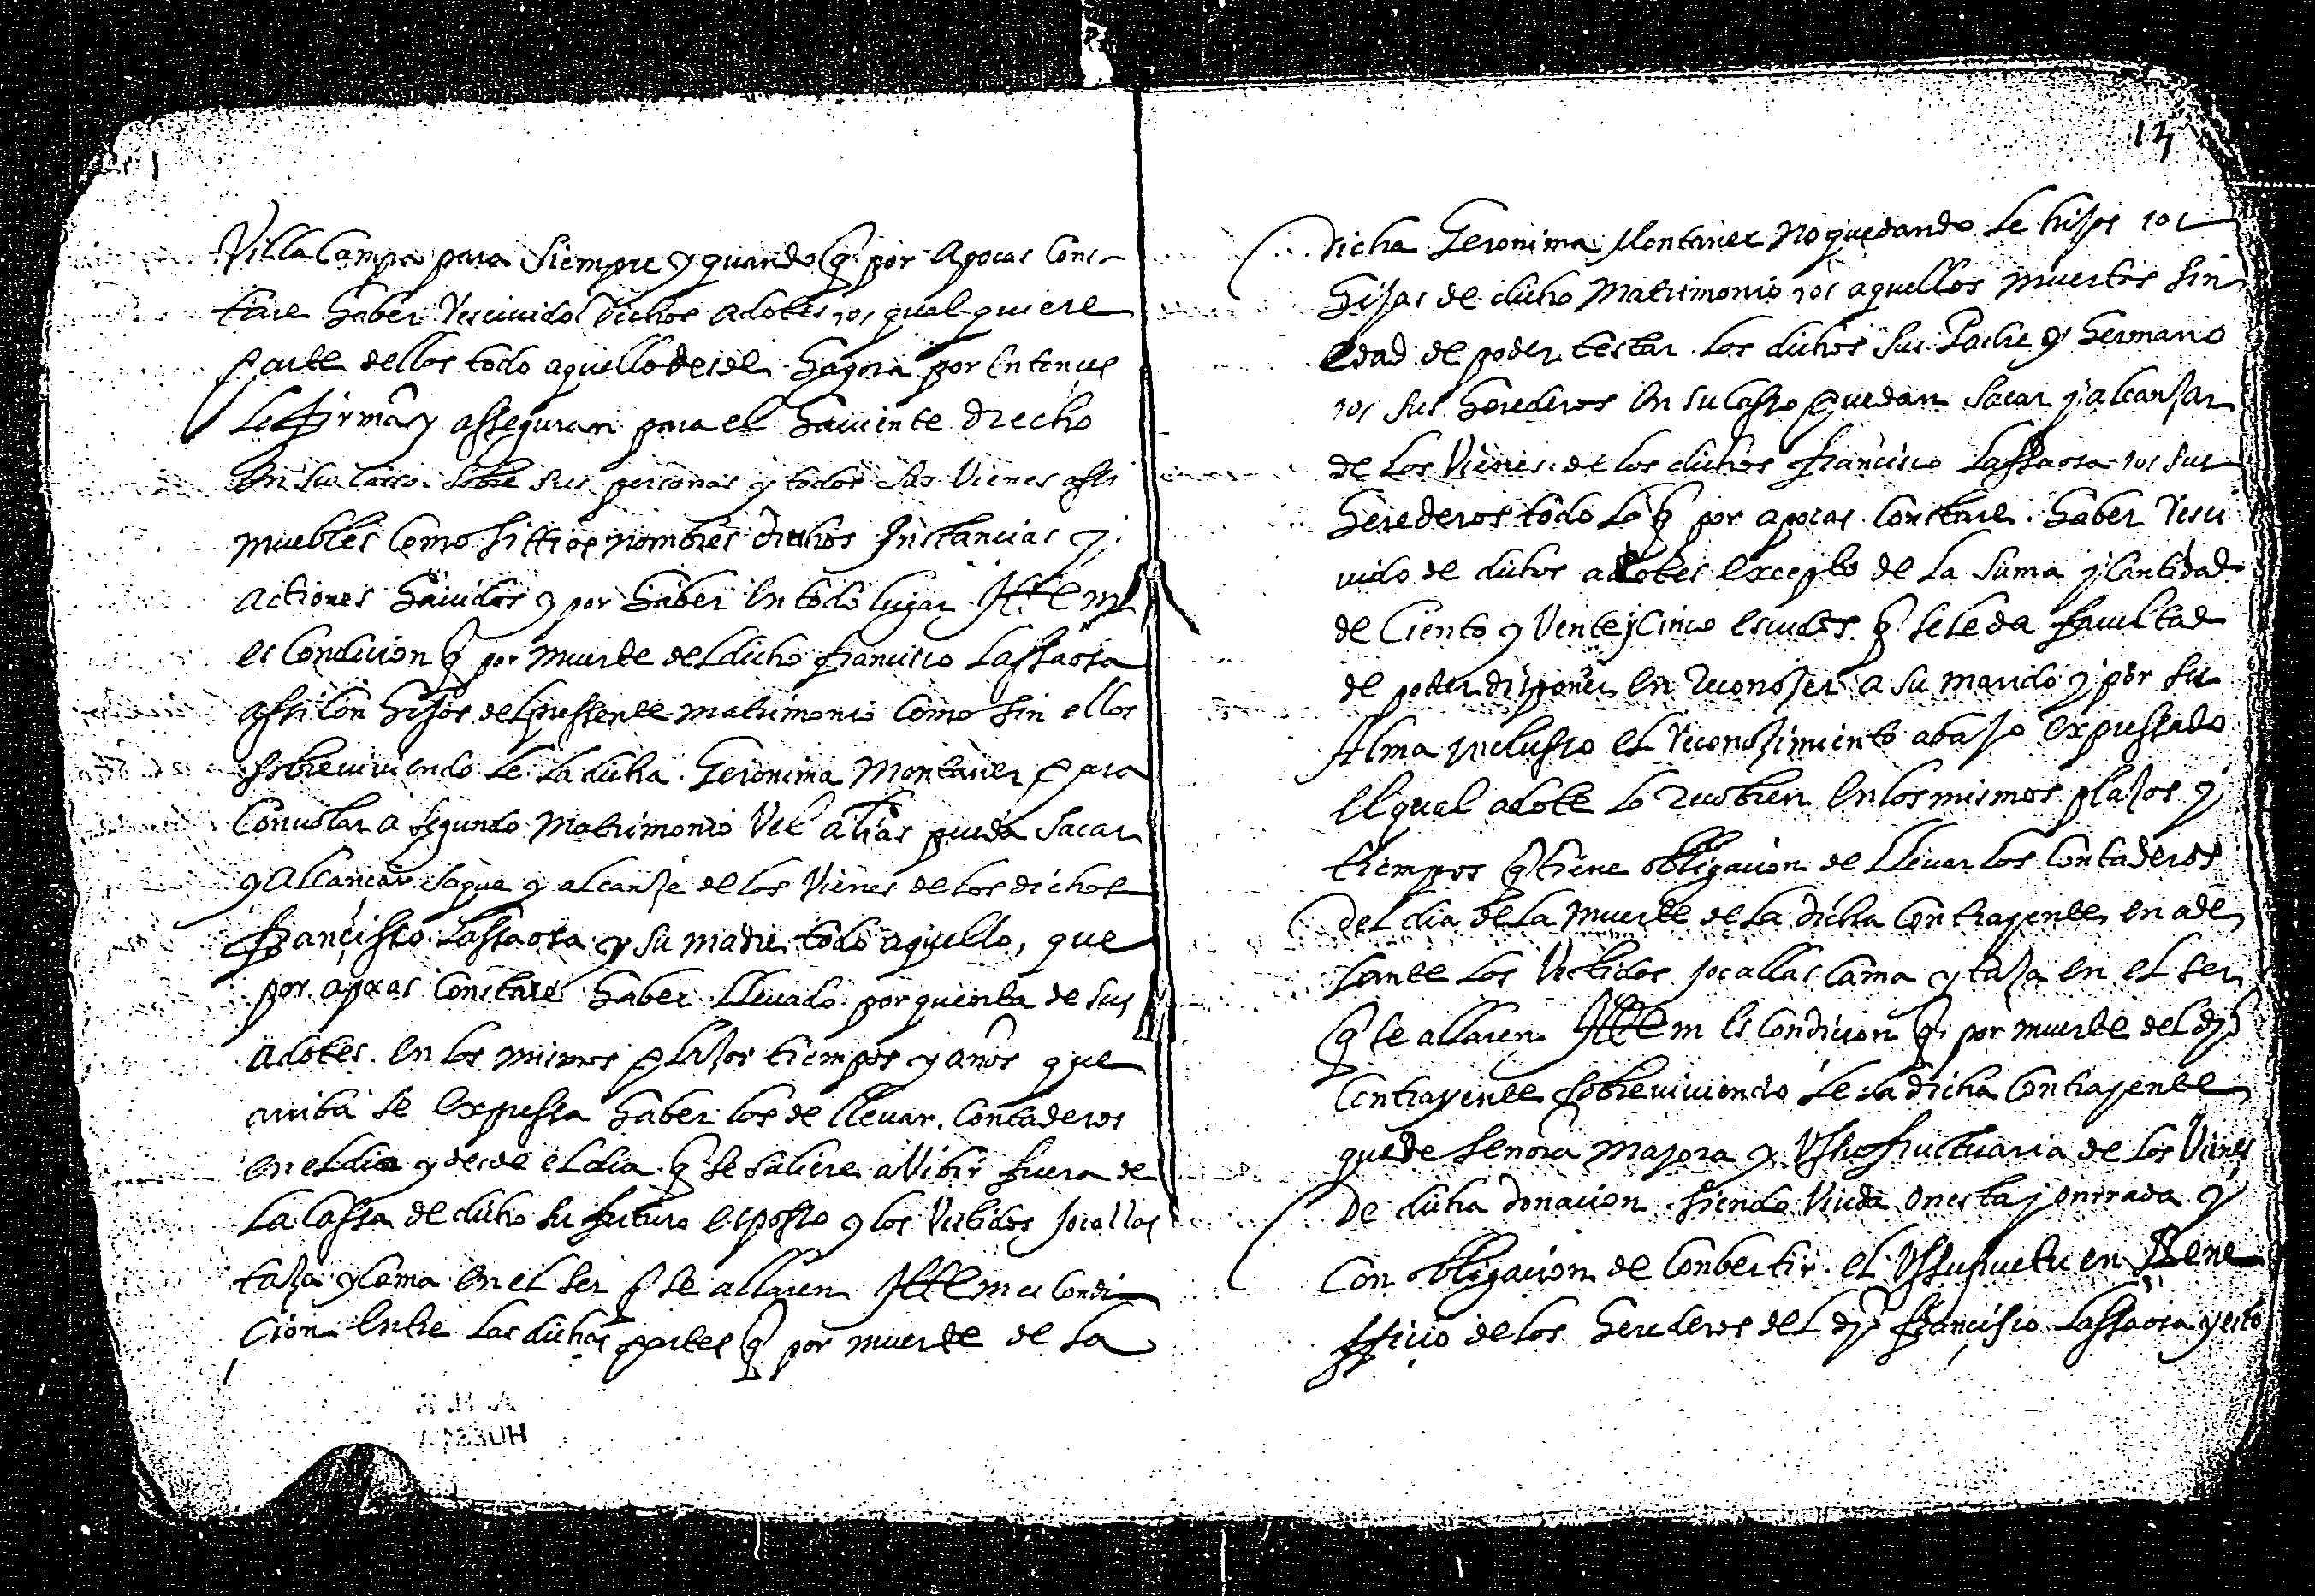 Villacampa para siempre y quando q por apocas cons-
tare haber reciuido dichos adotes o qual quiere
parte dellos todo aquello desde hagora por entonces
le firman y asseguran para el hauiente drecho
en su casso sobre sus personas y todos sus vienes assi
muebles como sittios nombres drechos instancias y
actiones hauidos y por haber en todo lugar Ittem
es condicion q por muerte del dicho francisco Lassaosa
assi con hijos del pressente matrimonio como sin ellos
sobreuiuiendo le la dicha Geronima Montaner para
conuolar a segundo matrimonio vel alias pueda sacar
y alcançar saque y alcanse de los vienes de los dichos
francisco Lassaosa y su madre todo aquello, que
por apocas constare haber lleuado por quenta de sus
adotes en los mismos plazos tiempos y anos que
arriba se expressa haber los de lleuar. contaderos
en el dia y desde el dia q se saliere a vibir fuera de
la cassa de dicho su futuro esposso y los vestidos jocallas
taza y cama en el ser q se allaren Ittem es condi
cion entre las dichas partes q por muerte de la
A. H. P.
HUESCA
14
dicha Geronima Montaner no quedando le hijos o
hijas de dicho matrimonio o aquellos muertos sin
edad de poder testar los dichos su Padre y hermano
o sus herederos en su casso puedan sacar y alcansar
de los vienes de los dichos francisco Lassaosa o sus
herederos todo lo q por apocas constare haber reci
uido de dichos adotes excepto de la suma y cantidad
de ciento y vente y cinco escudos q se le da facultad
de poder disponer en reconozer a su marido y por su
Alma inclusso el reconozimiento abajo expressado
el qual adote lo recobren en los mismos plazos y
tiempos q tiene obligacion de lleuar los contaderos
del dia de la muerte de la dicha contrayente en ade
lante los vestidos jocallas cama y taza en el ser
q se allaren Ittem es condicion q por muerte del dho
contrayente sobreuiuiendo le la dicha contrayente
quede senora mayora y ussofructuaria de los vienes
de dicha donacion siendo viuda onesta y onrrada y
con obligacion de conbertir el ussufructu en Bene
fficio de los herederos del dho francisco Lassaosa y esto